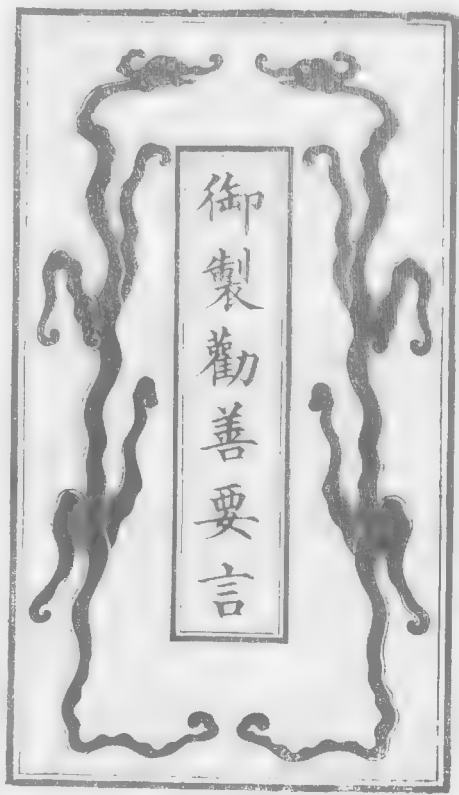 御製勸善要言